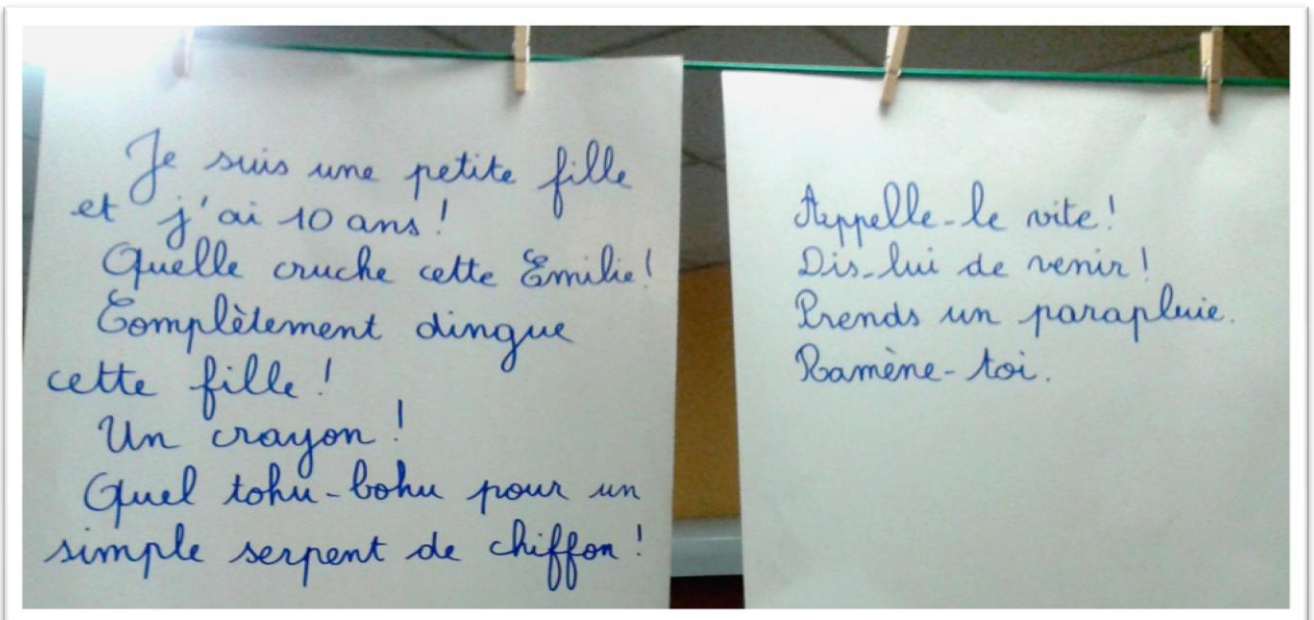 Je suis une petite fille
et j'ai 10 ans!
Quelle cruche cette Emilie!
Complètement dingue
cette fille!
Un crayon!
Quel tohu-bohu pour un
simple serpent de chiffon!
Appelle-le vite!
Dis-lui de venir!
Prends un parapluie.
Ramène-toi.